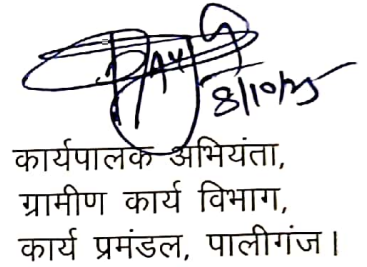 8/10/25
कार्यपालक अभियंता,
ग्रामीण कार्य विभाग,
कार्य प्रमंडल, पालीगंज।